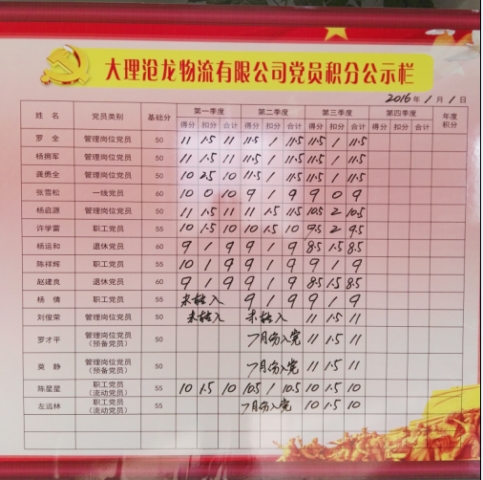 大理沧龙物流有限公司党员积分公示栏
2016年1月1日
姓名 党员类别 基础分 第一季度 第二季度 第三季度 第四季度 年度积分
得分 扣分 合计 得分 扣分 合计 得分 扣分 合计 得分 扣分 合计
罗全 管理岗位党员 50 11 1.5 11 11.5 1 11.5 11.5 1 11.5
杨拥军 管理岗位党员 50 11 1.5 11 11.5 1 11.5 11.5 1 11.5
龚勇全 管理岗位党员 50 10 2.5 10 11.5 1 11.5 11.5 1 11.5
张雪松 一线党员 60 10 0 10 9 1 9 9 0 9
杨启源 管理岗位党员 50 11 1.5 11 11 1.5 11.5 10.5 2 10.5
许学雷 职工党员 55 10 1.5 10 10 1.5 10 9.5 2 9.5
杨运和 退休党员 60 9 1 9 9 1 9 8.5 1.5 8.5
陈祥辉 职工党员 55 10 1 9 9 1 9 9 1 9
赵建良 退休党员 60 9 1 9 9 1 9 8.5 1.5 8.5
杨倩 职工党员 55 未转入 9 1 9 9 1 9
刘俊荣 管理岗位党员 50 未转入 未转入 11 1.5 11
罗才平 管理岗位党员(预备党员) 50 7月份入党 11 1.5 11
莫静 管理岗位党员(预备党员) 50 7月份入党 11 1.5 11
陈星星 职工党员(流动党员) 55 10 1.5 10 10.5 1 10.5 10 1.5 10
左远林 职工党员(流动党员) 55 7月份入党 10 1.5 10